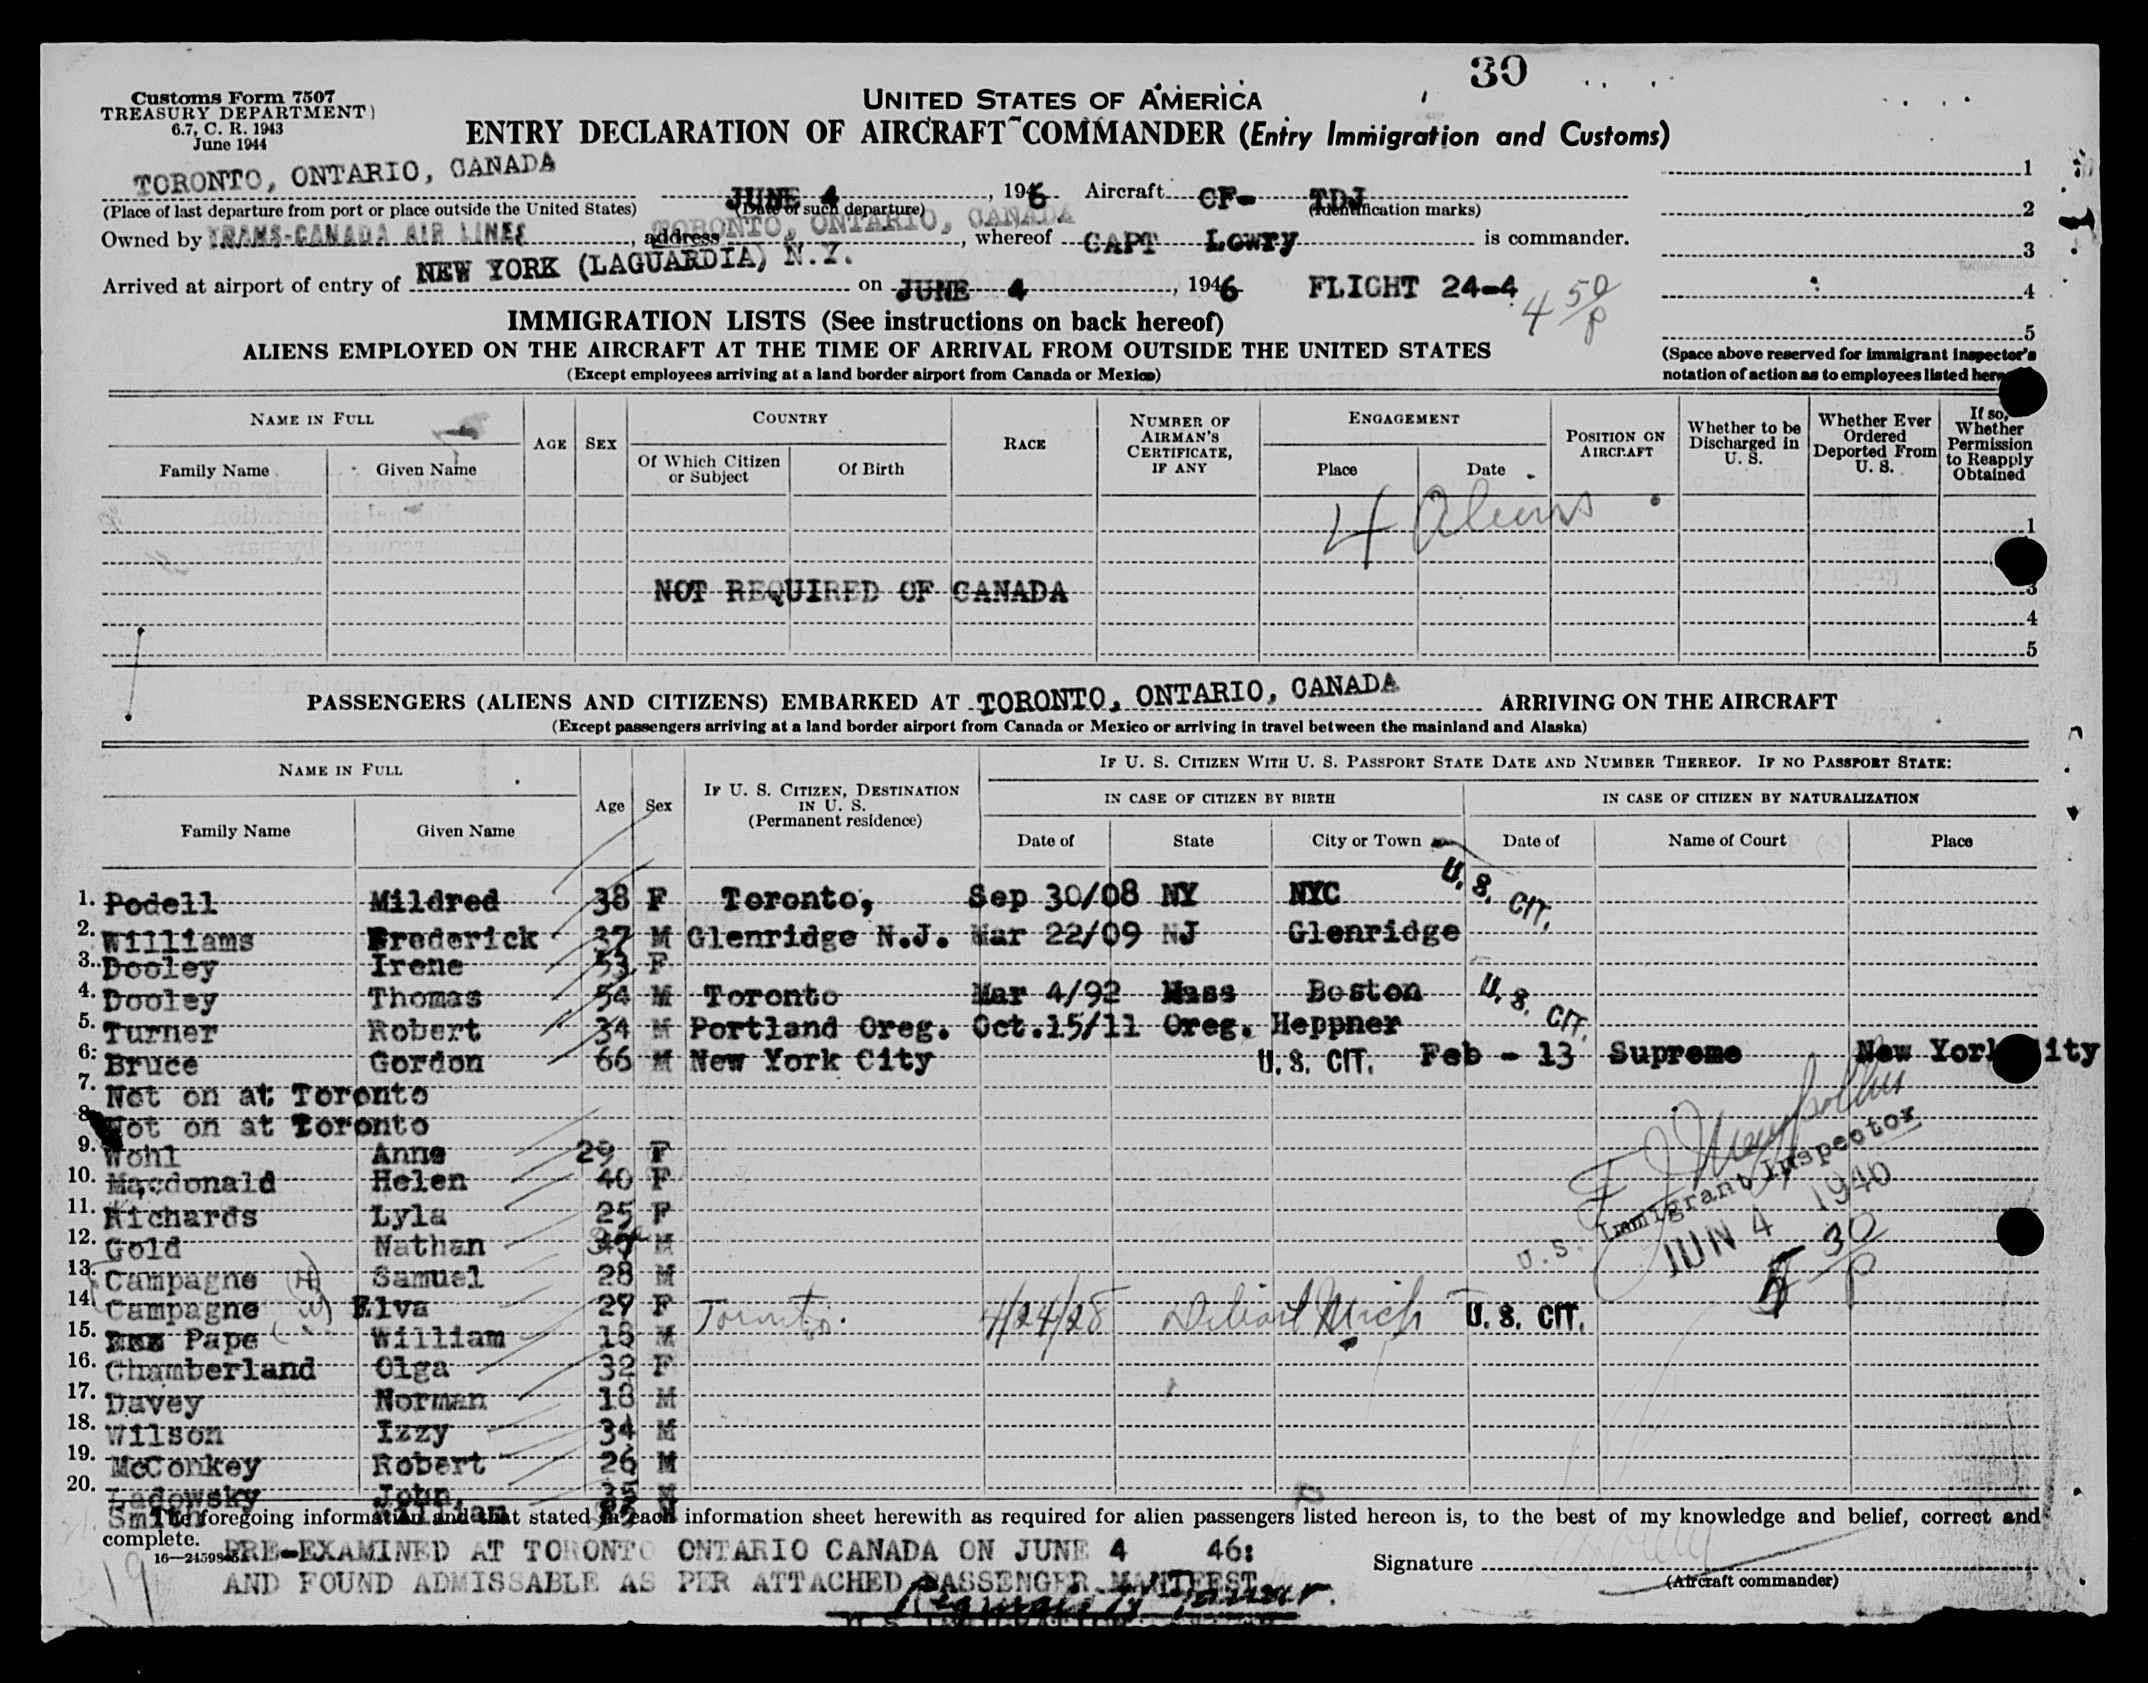 30
Customs Form 7507
TREASURY DEPARTMENT)
6.7, C. R. 1943
June 1944
UNITED STATES OF AMERICA
ENTRY DECLARATION OF AIRCRAFT COMMANDER (Entry Immigration and Customs)
TORONTO, ONTARIO, CANADA JUNE 4, 1946 Aircraft CF- TDJ 1
(Place of last departure from port or place outside the United States) (Date of such departure) (Identification marks) 2
Owned by TRANS-CANADA AIR LINES, address TORONTO, ONTARIO, CANADA, whereof CAPT Lowry is commander. 3
Arrived at airport of entry of NEW YORK (LAGUARDIA) N.Y. on JUNE 4, 1946 FLIGHT 24-4 4 50 P 4
5
IMMIGRATION LISTS (See instructions on back hereof)
ALIENS EMPLOYED ON THE AIRCRAFT AT THE TIME OF ARRIVAL FROM OUTSIDE THE UNITED STATES
(Space above reserved for immigrant inspector's
(Except employees arriving at a land border airport from Canada or Mexico)
notation of action as to employees listed
NAME IN FULL
Family Name
Given Name
AGE
SEX
COUNTRY
Of Which Citizen or Subject
Of Birth
RACE
NUMBER OF AIRMAN'S CERTIFICATE, IF ANY
ENGAGEMENT
Place
Date
POSITION ON AIRCRAFT
Whether to be Discharged in U. S.
Whether Ever Ordered Deported From U. S.
If so, Whether Permission to Reapply Obtained
4 Aliens
1
NOT REQUIRED OF CANADA 3
4
5
PASSENGERS (ALIENS AND CITIZENS) EMBARKED AT TORONTO, ONTARIO, CANADA ARRIVING ON THE AIRCRAFT
(Except passengers arriving at a land border airport from Canada or Mexico or arriving in travel between the mainland and Alaska)
NAME IN FULL
Family Name
Given Name
Age
Sex
IF U. S. CITIZEN, DESTINATION IN U. S.
(Permanent residence)
IF U. S. CITIZEN WITH U. S. PASSPORT STATE DATE AND NUMBER THEREOF. IF NO PASSPORT STATE:
IN CASE OF CITIZEN BY BIRTH
Date of
State
City or Town
IN CASE OF CITIZEN BY NATURALIZATION
Date of
Name of Court
Place
1. Podell Mildred 38 F Toronto, Sep 30/08 NY NYC U. S. CIT.
2. Williams Frederick 37 M Glenridge N.J. Mar 22/09 NJ Glenridge
3. Dooley Irene 53 F
4. Dooley Thomas 54 M Toronto Mar 4/92 Mass Boston U. S. CIT.
5. Turner Robert 34 M Portland Oreg. Oct.15/11 Oreg. Heppner
6. Bruce Gordon 66 M New York City U. S. CIT. Feb - 13 Supreme New York City
7. Not on at Toronto
8. Not on at Toronto
9. Wohl Anne 29 F
10. Macdonald Helen 40 F
11. Richards Lyla 25 F
12. Gold Nathan M
13. Campagne (H) Samuel 28 M
14. Campagne (W) Elva 29 F Toronto 4/24/28 Detroit Mich U. S. CIT.
15. Pape William 18 M
16. Chamberland Olga 32 F
17. Davey Norman 18 M
18. Wilson Izzy 34 M
19. McConkey Robert 26 M
20. Ladowsky John, 35 M
Smith William M
U. S. Immigrant Inspector
JUN 4 1946
5 30 P
The foregoing information and that stated in each information sheet herewith as required for alien passengers listed hereon is, to the best of my knowledge and belief, correct and
complete.
PRE-EXAMINED AT TORONTO ONTARIO CANADA ON JUNE 4 46:
Signature
AND FOUND ADMISSABLE AS PER ATTACHED PASSENGER MANIFEST
(Aircraft commander)
19